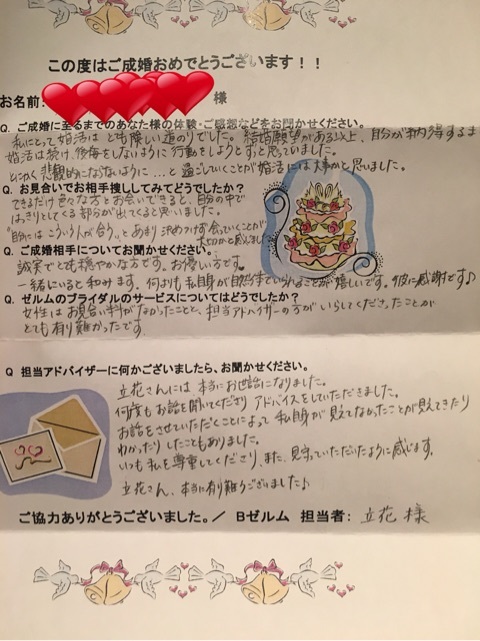 この度はご成婚おめでとうございます！！
お名前: 様
Q. ご成婚に至るまでのあなた様の体験・ご感想などをお聞かせください。
私にとって婚活は とても険しい道のりでした。結婚願望がある以上、自分が納得するまで
婚活は続け、後悔をしないように 行動をしようとずっと思っていました。
とにかく 悲観的にならないように…と 過ごしていくことが婚活には大事かと思いました。
Q. お見合いでお相手捜ししてみてどうでしたか？
できるだけ色々な方とお会いできると、自分の中で
はっきりとしてくる部分が出てくると思いました。
"自分にはこういう人が合う"と、あまり決めつけず会っていくことが
大切かと感じました
Q. ご成婚相手についてお聞かせください。
誠実でとても穏やかな方です。お優しい方です。
一緒にいると和みます。何よりも私自身が自然体でいられることが嬉しいです。彼に感謝です♪
Q. ゼルムのブライダルのサービスについてはどうでしたか？
女性はお見合い料がなかったことと、担当アドバイザーの方がいらしてくださったことが
とても有り難かったです。
Q 担当アドバイザーに何かございましたら、お聞かせください。
立花さんには 本当にお世話になりました。
何度もお話を聞いてくださり アドバイスをしていただきました。
お話をさせていただくことによって 私自身が見えてなかったことが見えてきたり
わかったりしたこともありました。
いつも私を尊重してくださり、また、見守っていただいたように感じます。
立花さん、本当に有り難うございました♪
ご協力ありがとうございました。／ Bゼルム 担当者: 立花 様